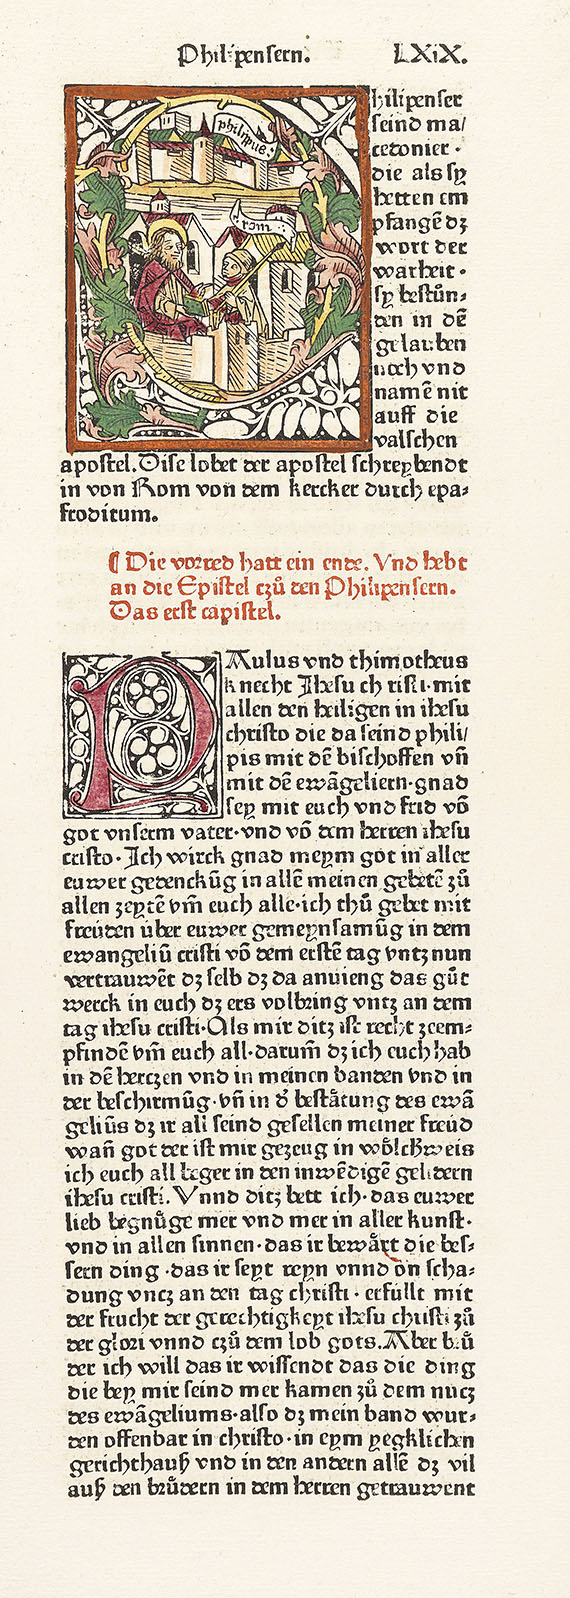 Philipensern. LXiX.
philipus
rom
hilipenser
seind ma/
cedonier·
die als sy
hetten em
pfangē dz
wort der
warheit·
sy bestůn⸗
den in dē
gelauben
noch vnd
namē nit
auff die
valschen
apostel. Dise lobet der apostel schreybendt
in von Rom von dem kercker durch epa⸗
froditum.
¶ Die vorred hatt ein ende. Vnd hebt
an die Epistel czů den Philipensern.
Das erst capistel.
PAulus vnd thimotheus
knecht Jhesu christi·mit
allen den heiligen in ihesu
christo die da seind phili/
pis mit dē bischoffen vn̄
mit dē ewāgeliern·gnad
sey mit euch vnd frid vō
got vnserm vater·vnd vō dem herren ihesu
cristo·Ich wirck gnad meym got in aller
euwer gedenckūg in allē meinen gebetē zů
allen zeytē vm̄ euch alle·ich thů gebet mit
freüden über euwer gemeynsamūg in dem
ewangeliū cristi vō dem erstē tag vntz nun
vertrauwēt dz selb dz da anuieng das gůt
werck in euch dz ers volbring vntz an dem
tag ihesu cristi·Als mir ditz ist recht zeem⸗
pfindē vm̄ euch all·darum̄ dz ich euch hab
in dē herczen vnd in meinen banden vnd in
der beschirmūg·vn̄ in d̄ bestätung des ewā
geliūs dz ir all seind gesellen meiner freüd
wan̄ got der ist mir gezeug in wölchweis
ich euch all beger in den inwēdigē gelidern
ihesu cristi. Vnnd ditz bett ich·das euwer
lieb begnüge mer vnd mer in aller kunst·
vnd in allen sinnen·das ir bewärt die bes⸗
sern ding·das ir seyt reyn vnnd on scha⸗
dung vncz an den tag christi·erfüllt mit
der frucht der gerechtigkeyt ihesu christi zů
der glori vnnd czů dem lob gots. Aber brů
der ich will das ir wissendt das die ding
die bey mir seind mer kamen zů dem nucz
des ewāgeliums·also dz mein band wur⸗
den offenbar in christo·in eym yegklichen
gerichthauß vnd in den andern allē dz vil
auß den brůdern in dem herren getrauwent